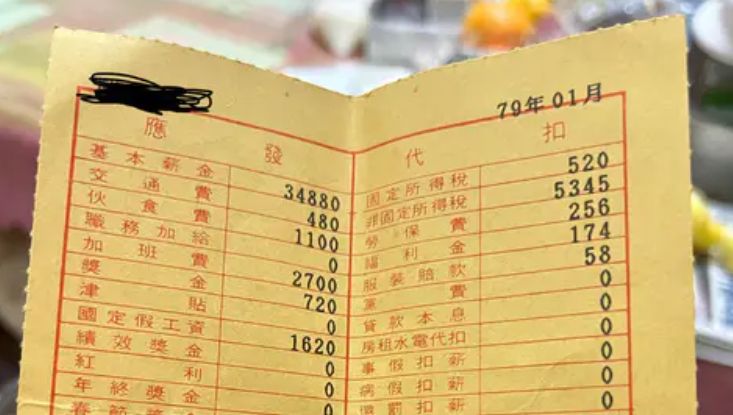 79年01月
應發
基本薪金 34880
交通費 480
伙食費 1100
職務加給 0
加班費 2700
獎金 720
津貼 0
國定假工資 1620
績效獎金 0
紅利 0
年終獎金 0
春節
代扣
固定所得稅 520
非固定所得稅 5345
勞保費 256
福利金 174
服裝賠款 58
黨費 0
貸款本息 0
房租水電代扣 0
事假扣薪 0
病假扣薪 0
懲罰扣薪 0